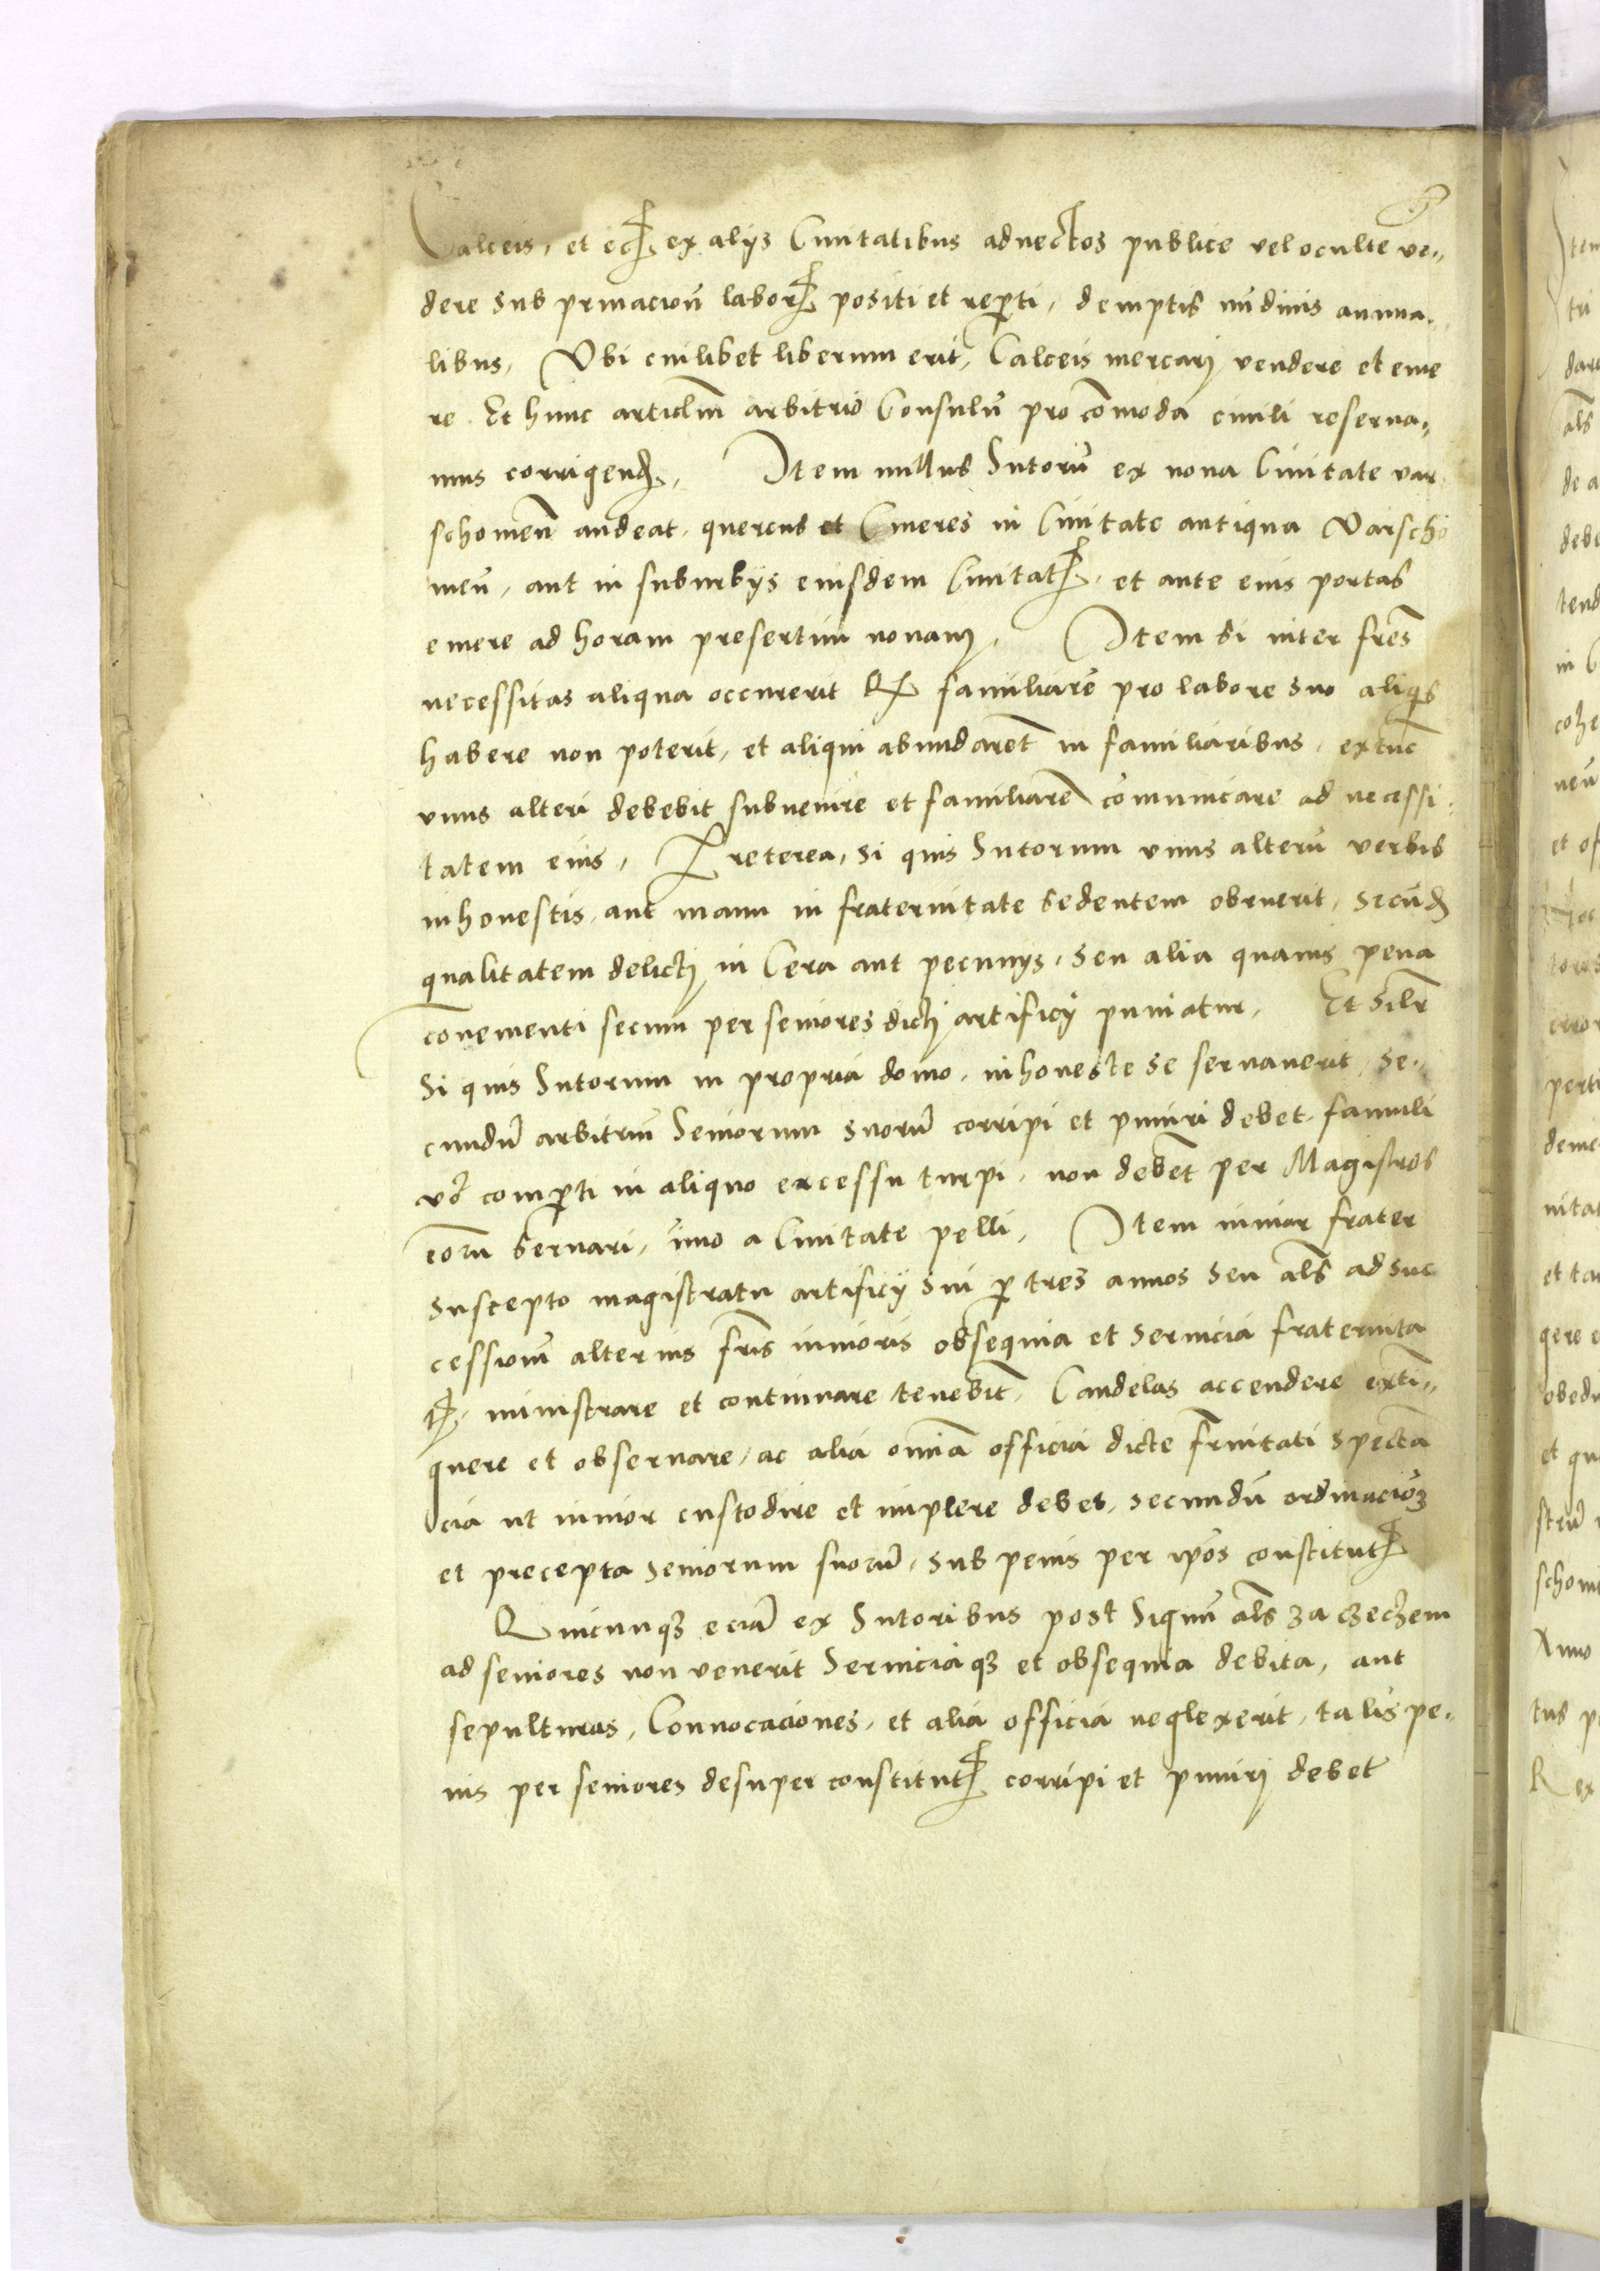 Calceis, et ex alijs Ciuitatibus aduectos publice vel oculte ve„
dere sub priuacioñ labor positi et reperti, demptis nũdinis annua„
libus, Vbi cuilibet liberum erit, Calceis mercari vendere et eme
re Et hunc articl̃m arbitrio Consulũ pro cõmoda ciuili reserua„
mus corrigend. Item nullus Sutorũ ex noua Ciuitate var
schouieñ audeat quercus et Cineres in Ciuitate antiqua Varscho
uieñ, aut in suburbijs eiusdem Ciuitat, et ante eius portas
emere ad horam presertim nonam, Item si inter fres̃
necessitas aliqua occurerit Q familiarẽ pro labore suo aliqs
habere non poterit, et aliqui abundarẽt in familiaribus, extũc
vnus alteri debebit subuenire et familiarẽ comunicare ad necessi„
tatem eius, Preterea, si quis Sutorum vnus alterũ verbis
inhonestis aut manu in fraternitate sedentem obruerit, secũd
qualitatem delicti in Cera aut pecunijs, seu alia quauis pena
conuementi secum per seniores dicti artificij puniatur, Et sil̃r
Si quis Sutorum in propria domo, inhoneste se seruauerit, se„
cundũ arbitriũ Seniorum suorũ corripi et puniri debet famuli
vo comperti in aliquo excessu turpi, non debẽt per Magistros
eorũ seruari, imo a Ciuitate pelli, Item iunior frater
suscepto magistratu artificij sui p tres annos seu al̃s ad suc
cessionẽ alterius fr̃is iunioris obsequia et seruicia fraternita
t, ministrare et continuare tenebit̃, Candelas accendere exti„
guere et obseruare, ac alia om̃ia officia dicte fr̃nitati specta
cia ut iunior custodire et implere debet, secundũ ordinacioẽ
et precepta seniorum suorũ, sub penis per ip̃os constitut
Quicunq3 eciã ex Sutoribus post Signũ al̃s za czechem
ad seniores non venerit Seruiciaq3 et obsequia debita, aut
sepulturas, Conuocaciones, et alia officia neglexerit, talis pe„
nis per seniores desuper constitut corripi et puniri debet